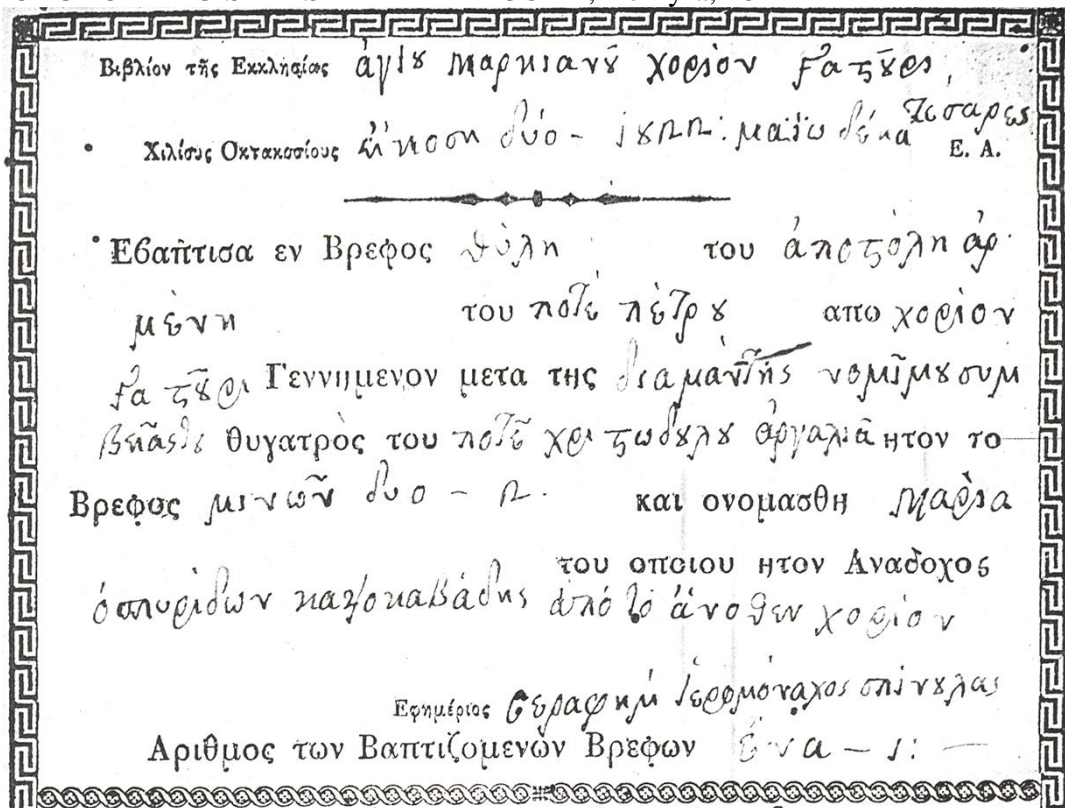 Βιβλίον τῆς Εκκλησίας ἁγίου μαρκιανοῦ χορίον γαστοῦρι
Χιλίσυς Οκτακοσίους εἴκοση δύο - μαΐω δέκα τέσαρες Ε. Α.
Εβαπτισα εν Βρεφος θύλη του ἀποστόλη ἀρ
μένη του ποτὲ πέτρου απω χορίον
γαστοῦρι Γεννημενον μετα της διαμαντῆς νομίμου συμ
βείας θυγατρὸς του ποτὲ χριστωδούλου ἀργαλιᾶ ητον το
Βρεφος μινῶν δυο - και ονομασθη Μαρία
του οποιου ητον Αναδοχος
ὁ σπυρίδων κατζοκαβάδης ἀπό τὸ ἄνοθεν χορίον
Εφημέριος Σεραφημ ἱερομόναχος σπίνουλας
Αριθμος των Βαπτιζομενὼν Βρεφων ἕνα -